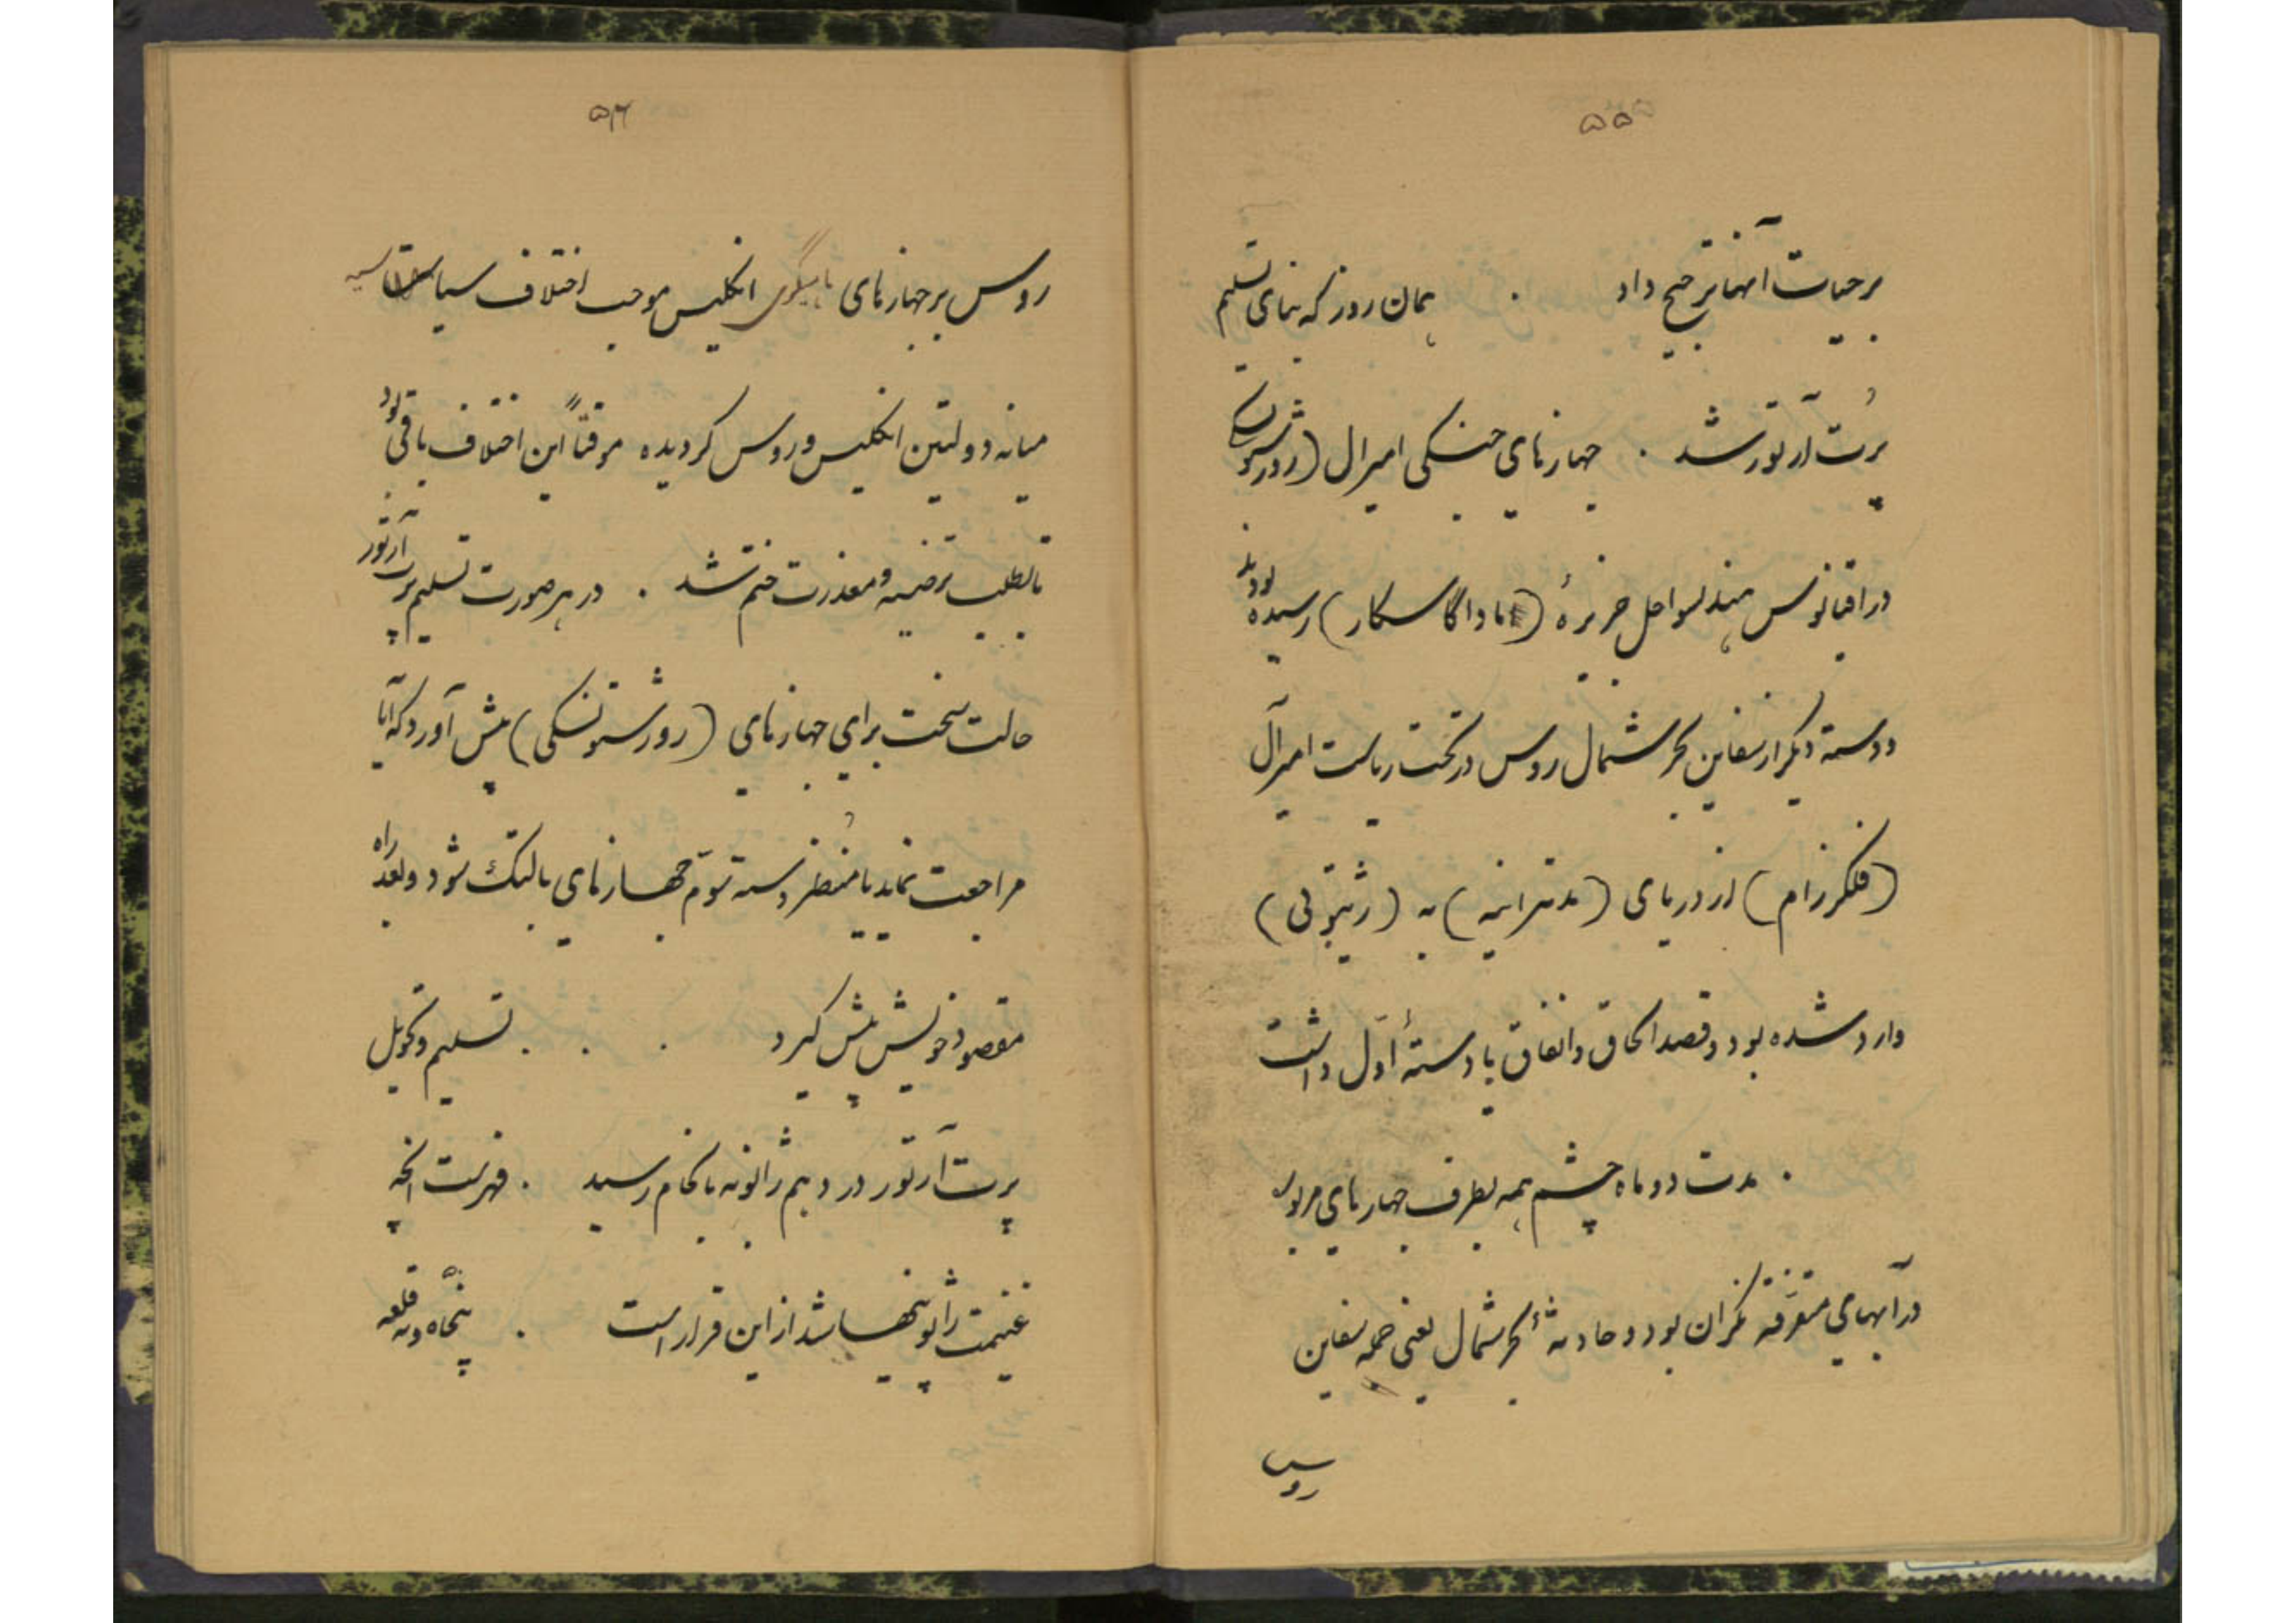 ۵۵
بر حیات آنها ترجیح داد . همان روز که بنای تسلیم
پُرت آرتور شد . جهازهای جنگی امیرال (روژستونسکی
در اقیانوس هند بسواحل جزیرهٔ (ماداگاسکار) رسیده بودند
و دسته دیگر از سفاین بحر شمال روس در تحت ریاست امیرآل
(فلکرزام) از دریای (مدیترانیه) به (ژیبوتی)
وارد شده بود و قصد الحاق و اتفاق با دستهٔ اوّل داشت
. مدت دو ماه چشم همه بطرف جهازهای مزبور
در آبهای متفرّقه نگران بود و حادثهٔ بحر شمال یعنی حمله سفاین
روس
۵۶
روس بر جهازهای ماهیگیری انگلیس موجب اختلاف سیاسیه
میانه دولتین انگلیس و روس گردیده موقتاً این اختلاف باقی بود
تا بطلب ترضیه و معذرت ختم شد . در هر صورت تسلیم پرت آرتور
حالت سخت برای جهازهای (روژستونسکی) پیش آورد که آیا
مراجعت نماید یا منُتظر دسته سوّم جهازهای بالتیک شود و بعد راه
مقصود خویش پیش گیرد . . . تسلیم و تحویل
پرت آرتور در دهم ژانویه بانجام رسید . فهرست آنچه
غنیمت ژاپونیها شد از این قرار است . پنجاه و نه قلعه